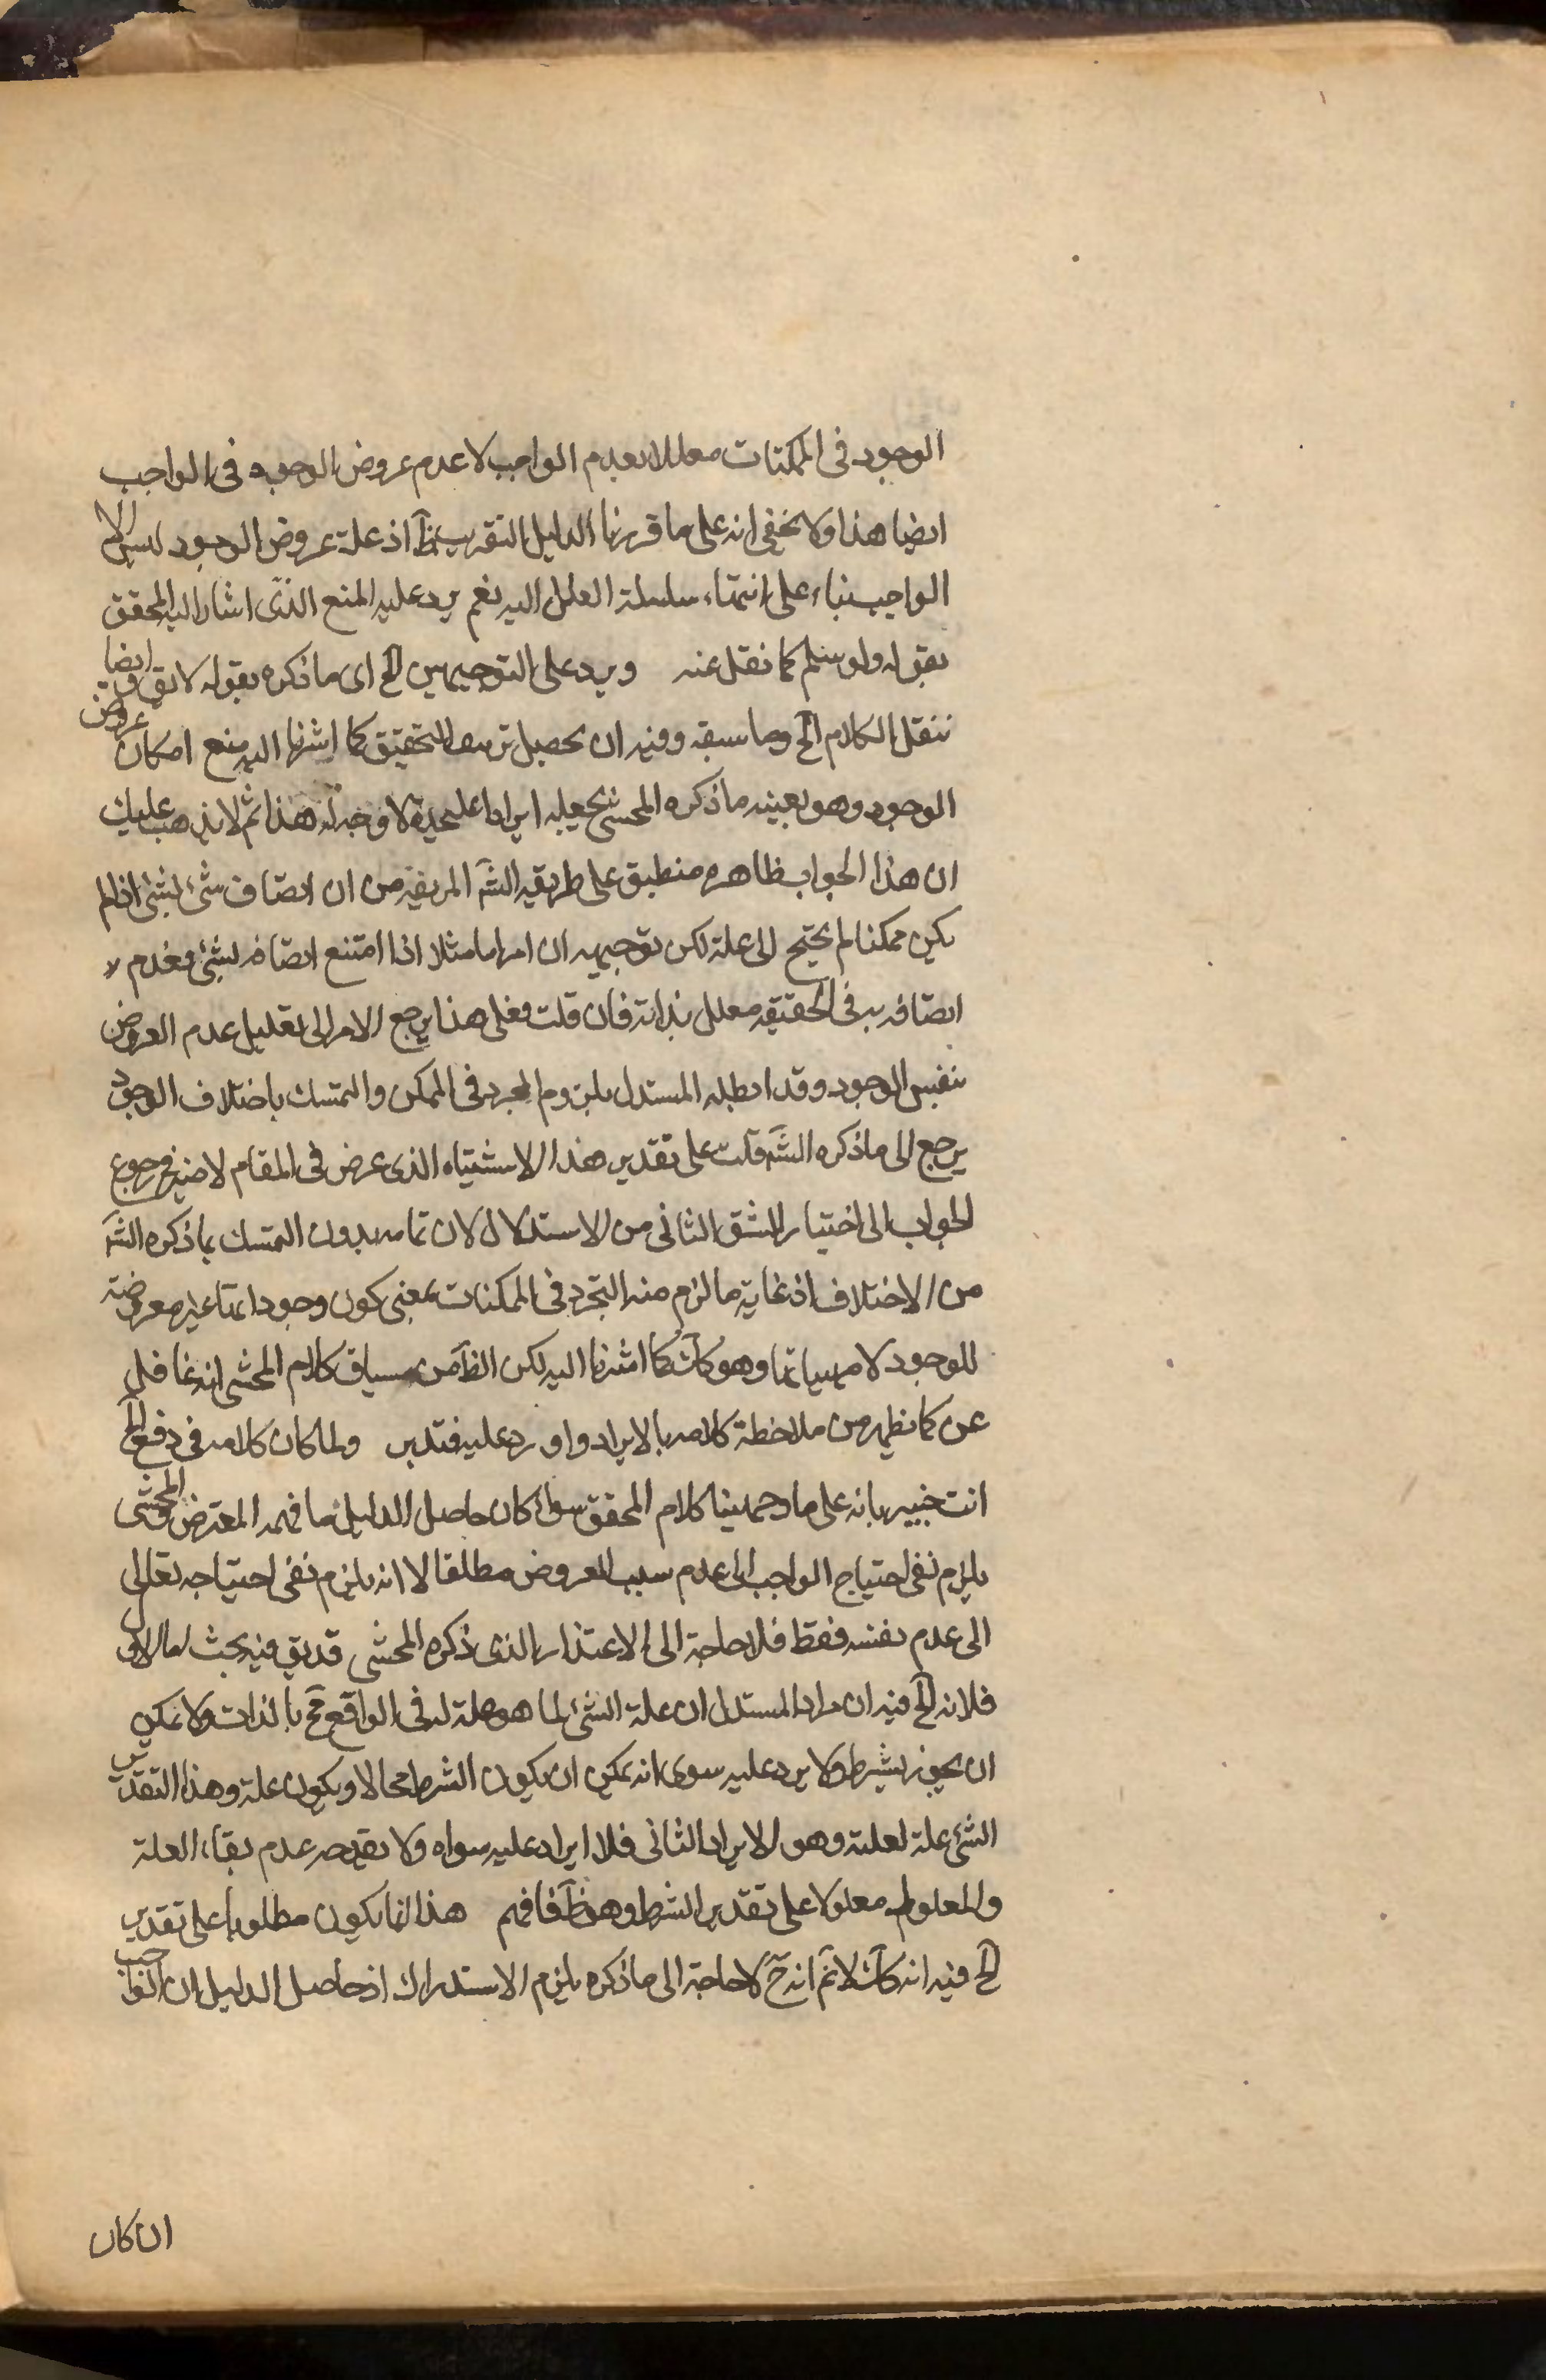 الوجود فى الممكنات معللا بعدم الواجب لا عدم عروض الوجود فى الواجب
ايضا هذا ولا يخفى انه على ما قررنا الدليل التقريب ظَ اذ علة عروض الوجود ليس الا
الواجب بناء على انتهاء سلسلة العلل اليه نعم يرد عليه المنع الذى اشار اليه المحقق
بقوله ولو سلم كما نقل عنه ويرد على التوجيهين الخ اى ما ذكره بقوله لا يق وايضا
ننقل الكلام الخ وما سبقه وفيه ان محصل التحقيق كما اشرنا اليه منع امكان عروض
الوجود وهو بعينه ما ذكره المحشى فجعله ايرادا عليحدة لا وجه له هذا ثم لا يذهب عليك
ان هذا الجواب ظاهره منطبق على طريقة الشَ المزيفة من ان اتصاف شئ بشئ اذا لم
يكن ممكنا لم يحتج الى علة لكن توجيهه ان امرا ما مثلا اذا امتنع اتصافه بشئ فعدم
اتصافه به فى الحقيقة معلل بذاته فان قلت فعلى هذا يرجع الامر الى تعليل عدم العروض
بنفس الوجود وقد ابطله المستدل بلزوم التجرد فى الممكن والتمسك باختلاف الوجود
يرجع الى ما ذكره الشَ قلت على تقدير هذا الاشتباه الذى عرض فى المقام لا ضير فى رجوع
الجواب الى اختيار الشق الثانى من الاستدلال لان تمامه بدون التمسك بما ذكره الشَ
من الاختلاف اذ غاية ما لزم منه التجرد فى الممكنات بمعنى كون وجوداتها غير معروضة
للوجود لا مهياتها وهو كاَت كما اشرنا اليه لكن الظَ من سياق كلام المحشى انه غافل
عن كما يظهر من ملاحظة كلامه بالايراد واورد عليه فتدبر ولما كان كلامه فى دفع الخ
انت خبير بانه على ما وجهنا كلام المحقق سواء كان حاصل الدليل ما فهمه المعترض او المحشى
يلزم نفى احتياج الواجب الى عدم سبب العروض مطلقا لا انه يلزم نفى احتياجه تعالى
الى عدم نفسه فقط فلا حاجة الى الاعتذار الذى ذكره المحشى قد يق فيه بحث اما الاول
فلانه الخ فيه ان مراد المستدل ان علة الشئ لما هو علة له فى الواقع مح بالذات ولا يمكن
ان يجوز بشرط ولا يرد عليه سوى انه يمكن ان يكون الشرط محالا ويكون علة وهذا التقدير
الشئ علة لعلته وهو الايراد الثانى فلا ايراد عليه سواه ولا يقدحه عدم بقاء العلة
والمعلول معلولا على تقدير الشرط وهو ظَ فافهم هذا انما يكون مطلوبا على تقدير
الخ فيه انه كاَت لا نَم انه حَ لا حاجة الى ما ذكره يلزم الاستدراك اذ حاصل الدليل ان الواجب
ان كان